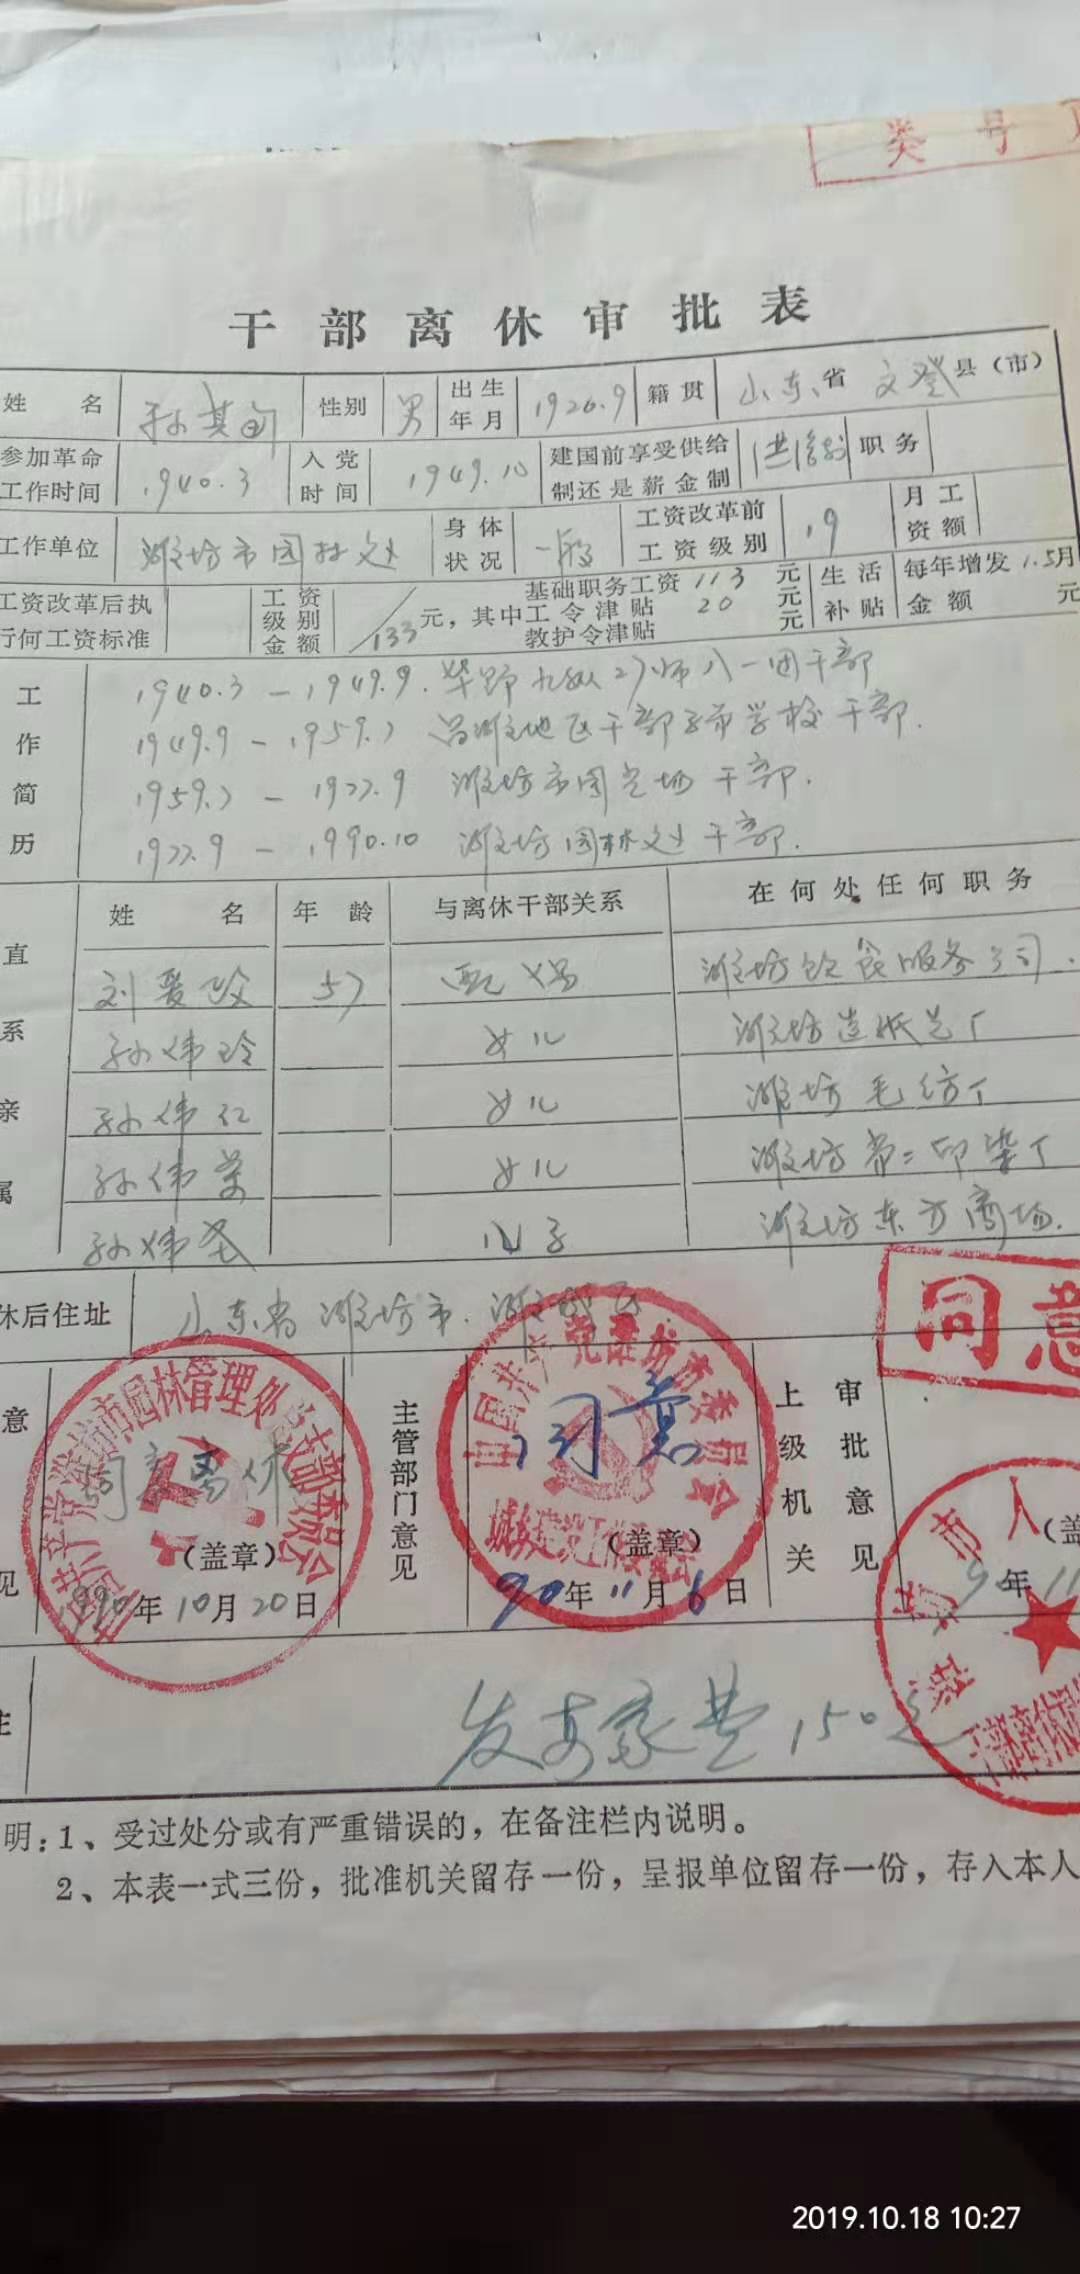 类 号
干部离休审批表
姓 名 孙其甸 性别 男 出生年月 1926.9 籍贯 山东省 文登县（市）
参加革命工作时间 1940.3 入党时间 1949.10 建国前享受供给制还是薪金制 供给制 职务
工作单位 潍坊市园林处 身体状况 一般 工资改革前工资级别 19 月工资额
工资改革后执行何工资标准 工资级别金额 133元，其中 基础职务工资 113 元 工令津贴 20 元 教护令津贴 元 生活补贴 每年增发 1.5月 金额 元
工作简历
1940.3 - 1949.9. 华野九纵27师八一团干部
1949.9 - 1959.7 昌潍地区干部子弟学校干部.
1959.7 - 1977.9 潍坊市园艺场干部.
1977.9 - 1990.10 潍坊园林处干部.
直系亲属
姓 名 年 龄 与离休干部关系 在何处任何职务
刘爱玫 57 配偶 潍坊饮食服务公司.
孙伟玲 女儿 潍坊造纸总厂
孙伟红 女儿 潍坊毛纺厂
孙伟 女儿 潍坊第二印染厂
孙伟 儿子 潍坊东方商场.
休后住址 山东省潍坊市.潍城区
意见 同意离休 （盖章） 1990年10月20日
中国共产党潍坊市园林管理处支部委员会
主管部门意见 同意 （盖章） 90年11月6日
中国共产党潍坊市委员会
城乡建设工作委员会
上级机关审批意见 同意 （盖 年 11
潍坊市人
干部离休
注 发安家费150元
明：1、受过处分或有严重错误的，在备注栏内说明。
2、本表一式三份，批准机关留存一份，呈报单位留存一份，存入本人
2019.10.18 10:27